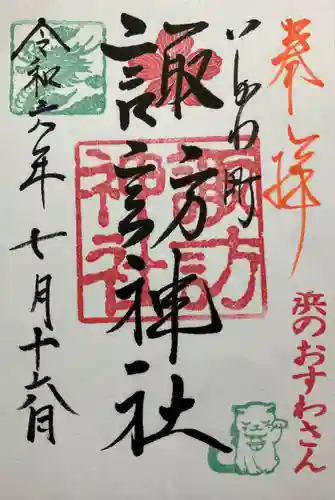 奉拝
浜のおすわさん
町
諏訪神社
諏訪神社
令和六年七月十六日